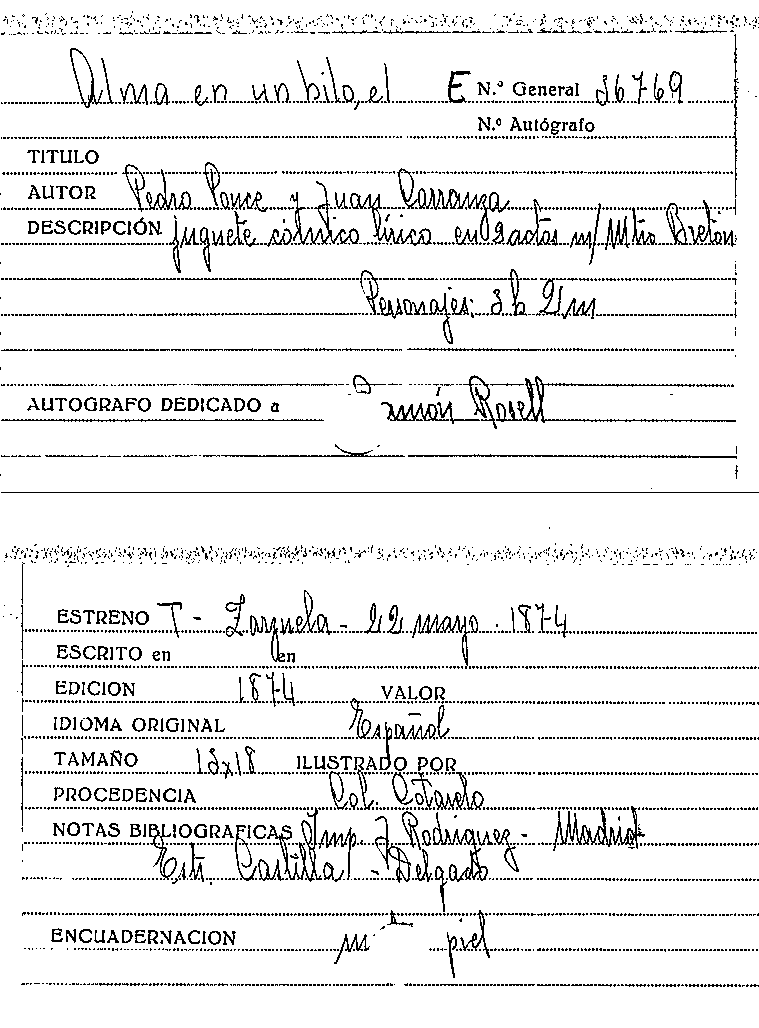 Alma en un hilo, el E N.º General 36769
N.º Autógrafo
TITULO
AUTOR Pedro Ponce y Juan Carranza
DESCRIPCIÓN juguete cómico lírico en 2 actos m/ Mtro Breton
Personajes: 3 h 2 m
AUTOGRAFO DEDICADO a Ramón Rosell
ESTRENO T - Zarzuela - 22 mayo - 1874
ESCRITO en en
EDICION 1874 VALOR
IDIOMA ORIGINAL Español
TAMAÑO 13x18 ILUSTRADO POR
PROCEDENCIA Col. Cotarelo
NOTAS BIBLIOGRAFICAS Imp. J. Rodriguez - Madrid
Estr. Castilla - Delgado
ENCUADERNACION piel